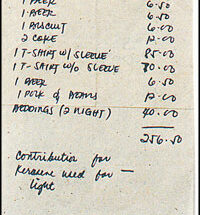 1 BEER 6.50
1 BEER 6.50
1 BISCUIT 6.00
2 COKE 12.00
1 T-SHIRT W/ SLEEVE 85.00
1 T-SHIRT W/O SLEEVE 70.00
1 BEER 6.50
1 PORK & BEANS 12.00
BEDDINGS (2 NIGHT) 40.00
256.50
Contribution for —
Kerosene used for
light